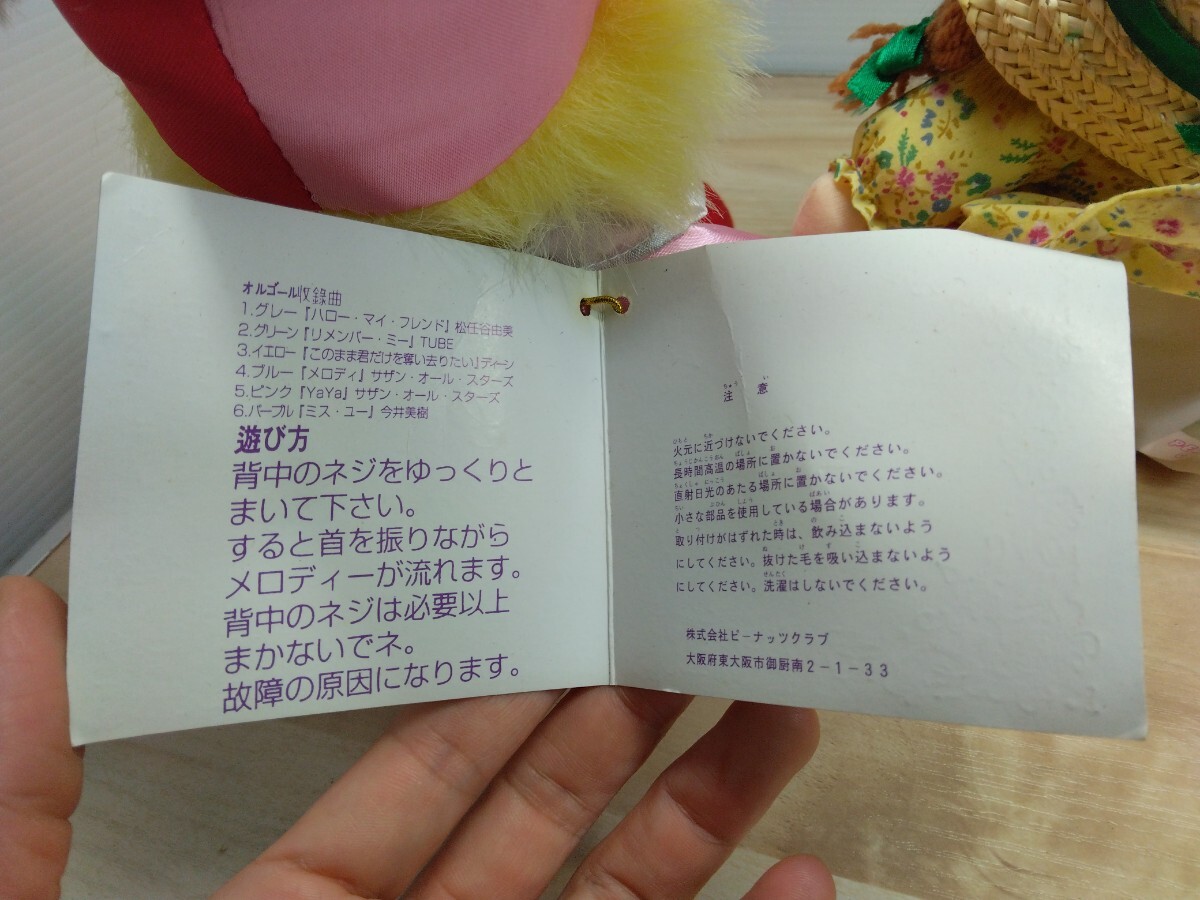 オルゴール収録曲
1.グレー『ハロー・マイ・フレンド』松任谷由美
2.グリーン『リメンバー・ミー』TUBE
3.イエロー『このまま君だけを奪い去りたい』ディーン
4.ブルー『メロディ』サザン・オール・スターズ
5.ピンク『YaYa』サザン・オール・スターズ
6.パープル『ミス・ユー』今井美樹
遊び方
背中のネジをゆっくりと
まいて下さい。
すると首を振りながら
メロディーが流れます。
背中のネジは必要以上
まかないでネ。
故障の原因になります。
注意
火元に近づけないでください。
長時間高温の場所に置かないでください。
直射日光のあたる場所に置かないでください。
小さな部品を使用している場合があります。
取り付けがはずれた時は、飲み込まないよう
にしてください。抜けた毛を吸い込まないよう
にしてください。洗濯はしないでください。
株式会社ピーナッツクラブ
大阪府東大阪市御厨南2-1-33